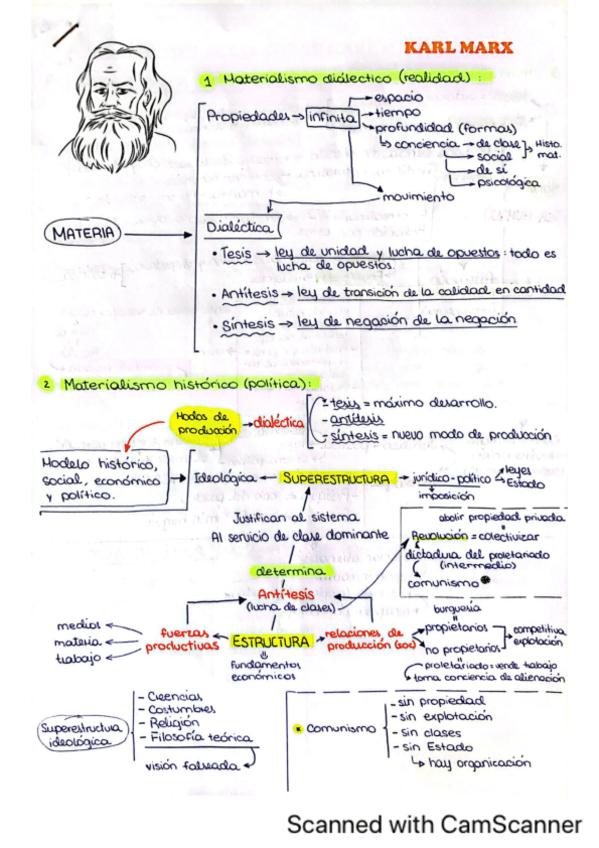 KARL MARX
1 Materialismo dialéctico (realidad):
Propiedades → infinita → espacio
→ tiempo
→ profundidad (formas)
↳ conciencia → de clase ] → Histo.
→ social ] mat.
→ de sí
→ psicológica
→ movimiento
MATERIA →
Dialéctica
• Tesis → ley de unidad y lucha de opuestos: todo es
lucha de opuestos.
• Antítesis → ley de transición de la calidad en cantidad
• Síntesis → ley de negación de la negación
2 Materialismo histórico (política):
Modos de
producción → dialéctica
- tesis = máximo desarrollo.
- antítesis
- síntesis = nuevo modo de producción
Modelo histórico,
social, económico
y político.
Ideológica ← SUPERESTRUCTURA → jurídico-político
→ leyes
→ Estado
imposición
Justifican al sistema
Al servicio de clase dominante
abolir propiedad privada
Revolución = colectivizar
dictadura del proletariado
(intermedio)
comunismo
determina
Antítesis
(lucha de clases)
medios
materia
trabajo
fuerzas
productivas
← ESTRUCTURA →
fundamentos
económicos
relaciones de
producción (soc)
burguesía
propietarios
no propietarios
competitiva
explotación
proletariado = vende trabajo
toma conciencia de alienación
Superestructura
ideológica
- Creencias
- Costumbres
- Religión
- Filosofía teórica
visión falseada
• Comunismo
- sin propiedad
- sin explotación
- sin clases
- sin Estado
↳ hay organización
Scanned with CamScanner